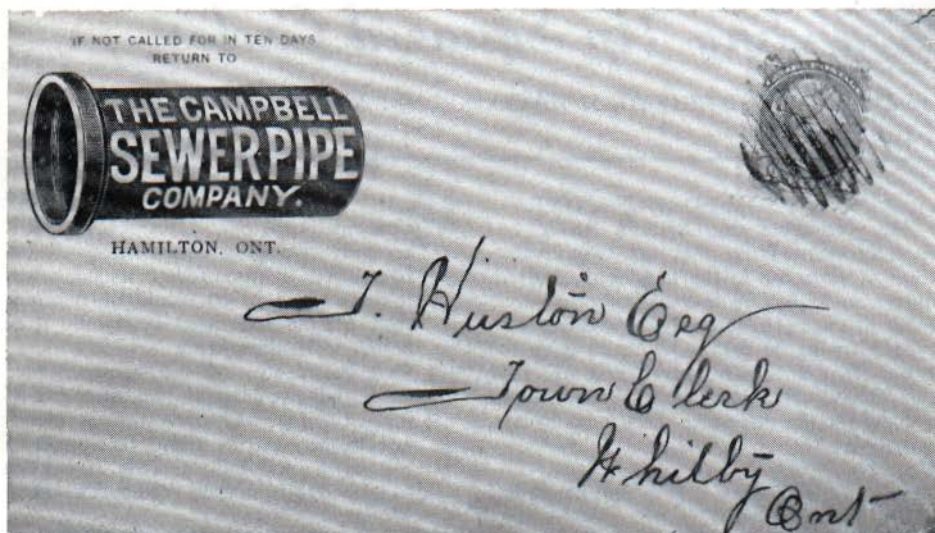 IF NOT CALLED FOR IN TEN DAYS
RETURN TO
THE CAMPBELL
SEWER PIPE
COMPANY.
HAMILTON, ONT.
T. Huston Esq
Town Clerk
Whitby
Ont